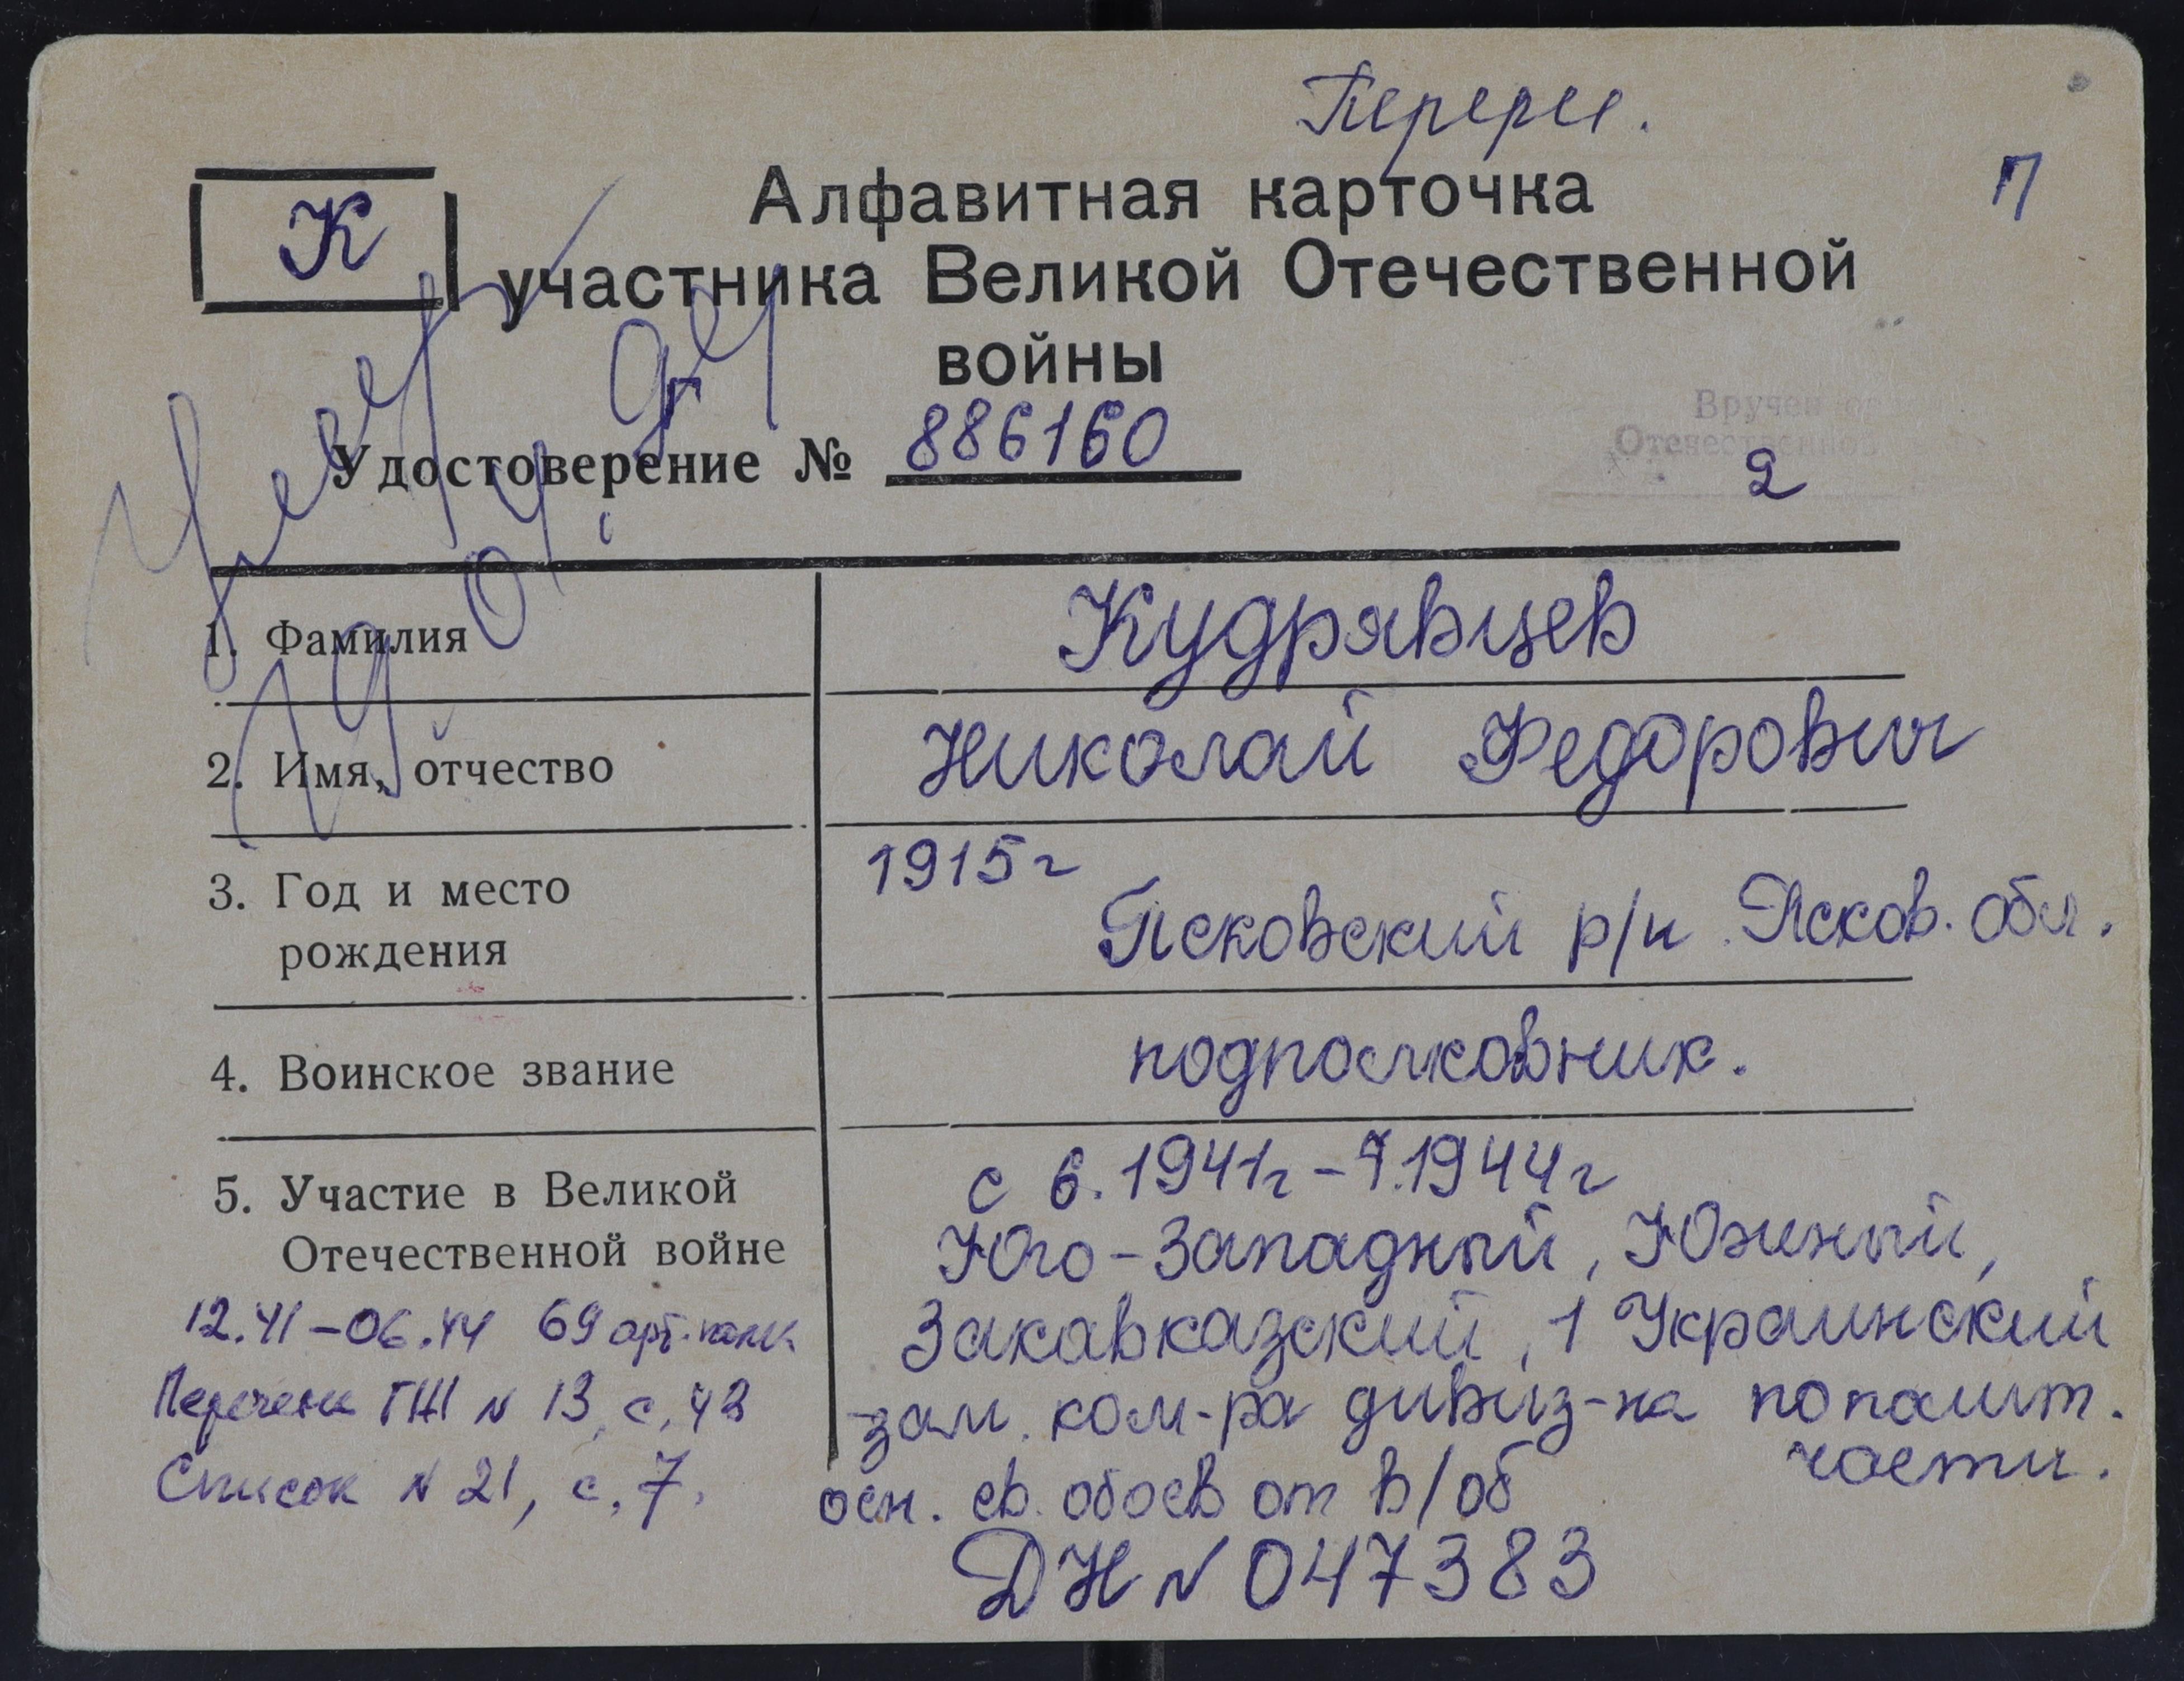 Перерег.
К
П
Алфавитная карточка
участника Великой Отечественной
войны
Вручен
Отечественной
2
Удостоверение № 886160
1. Фамилия Кудрявцев
2. Имя, отчество Николай Федорович
3. Год и место 1915г
рождения Псковский р/н Псков. обл.
4. Воинское звание подполковник.
5. Участие в Великой с 6.1941г – 7.1944г
Отечественной войне Юго-Западный, Южный,
12.41 – 06.44 69 арт. полк Закавказский, 1 Украинский
Перечень ГШ N 13, с. 42 зам. ком-ра дивиз-на по полит.
части.
Список N 21, с. 7. осн. св. обоев от в/об
ДН N 047383